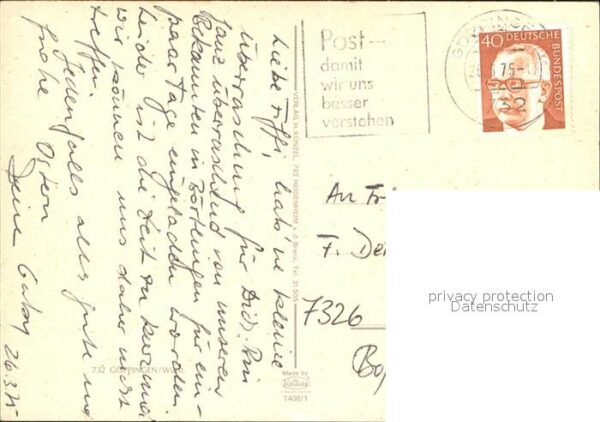 Liebe Tiffi, hab 'ne kleine
Überraschung für Dich. Bin
ganz überraschend von unseren
Bekannten in Göppingen für ein
paar Tage eingeladen worden.
Leider ist die Zeit zu kurz und
wir können uns daher nicht
treffen.
Jedenfalls alles gute und
frohe Ostern
Deine
26.3.75
732 GÖPPINGEN/WÜRTT.
VERLAG H. KÜNZEL, 792 HEIDENHEIM a. d. Brenz, Tel. 21505
Made by
Krüger
1408/1
Post-
damit
wir uns
besser
verstehen
GÖPPINGEN
75
40 DEUTSCHE
BUNDESPOST
An
F. Dei
7326
privacy protection
Datenschutz